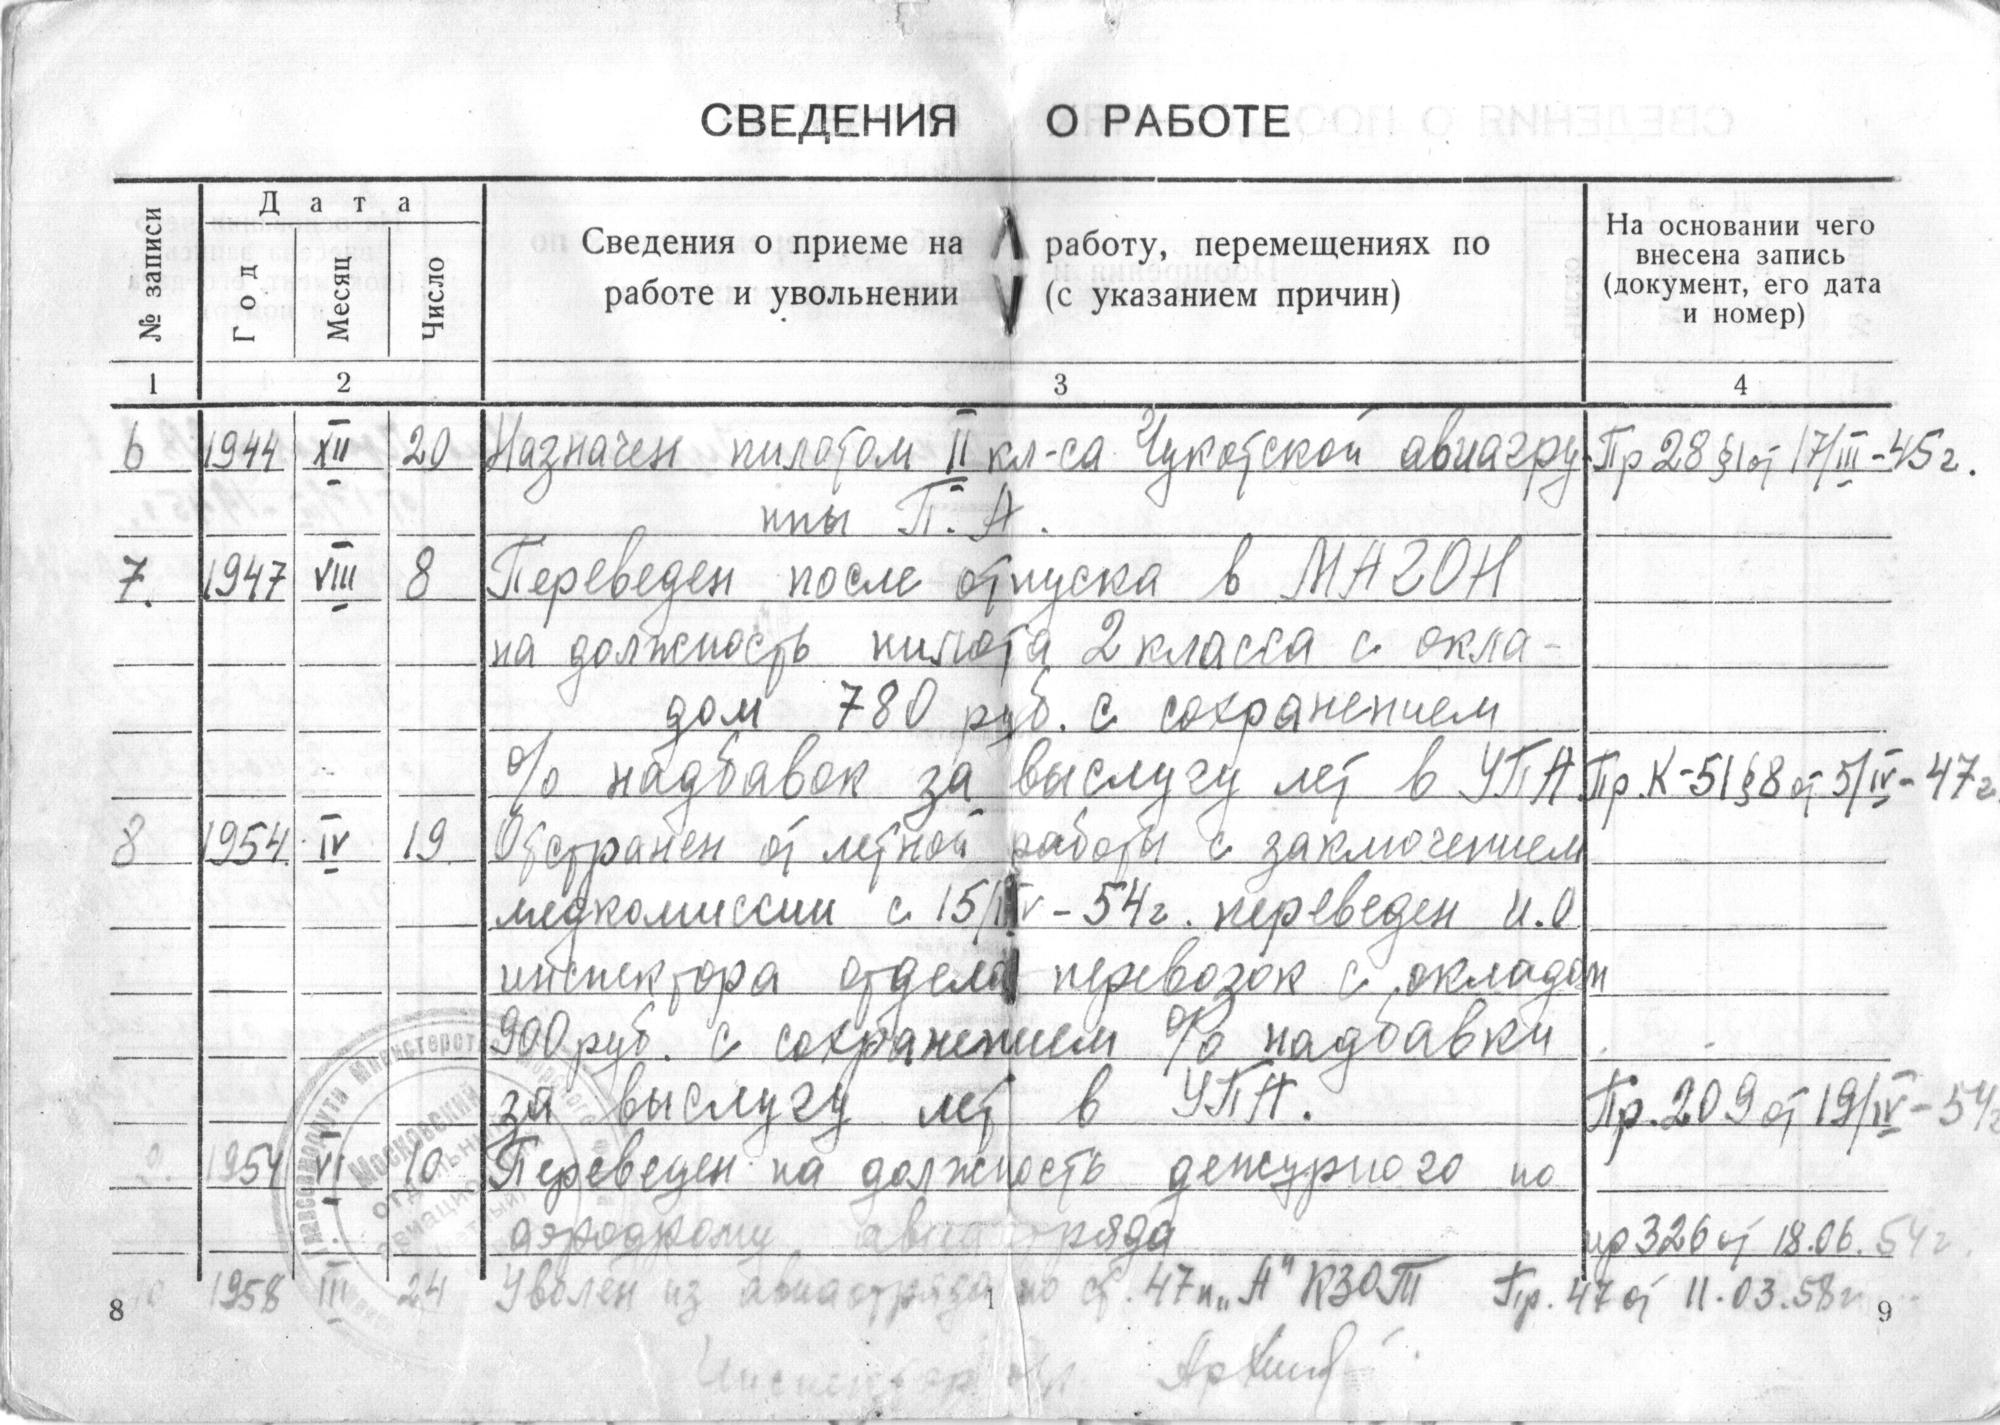 СВЕДЕНИЯ О РАБОТЕ
№ записи
Дата
Год
Месяц
Число
Сведения о приеме на работу, перемещениях по
работе и увольнении (с указанием причин)
На основании чего
внесена запись
(документ, его дата
и номер)
1 2 3 4
6 1944 XII 20 Назначен пилотом II кл-са Чукотской авиагру- Пр 28 §1 от 17/III-45г.
ппы П.А.
7. 1947 VIII 8 Переведен после отпуска в МАГОН
на должность пилота 2 класса с окла-
дом 780 руб. с сохранением
% надбавок за выслугу лет в УПА Пр. К-51 §8 от 5/IV-47г.
8 1954 IV 19 Отстранен от летной работы с заключением
медкомиссии с 15/IV-54г. переведен и.о
инспектора отдела перевозок с окладом
900 руб. с сохранением % надбавки
за выслугу лет в УПА. Пр. 209 от 19/IV-54г
9. 1954 VI 10 Переведен на должность дежурного по
аэродрому авиаотряда пр 326 от 18.06.54г.
10 1958 III 24 Уволен из авиаотряда по ст. 47 п „А" КЗОТ Пр. 47 от 11.03.58г
8 9
Инспектор
Главсевморпути Министерство Морского
Московский
отдельный
авиационный